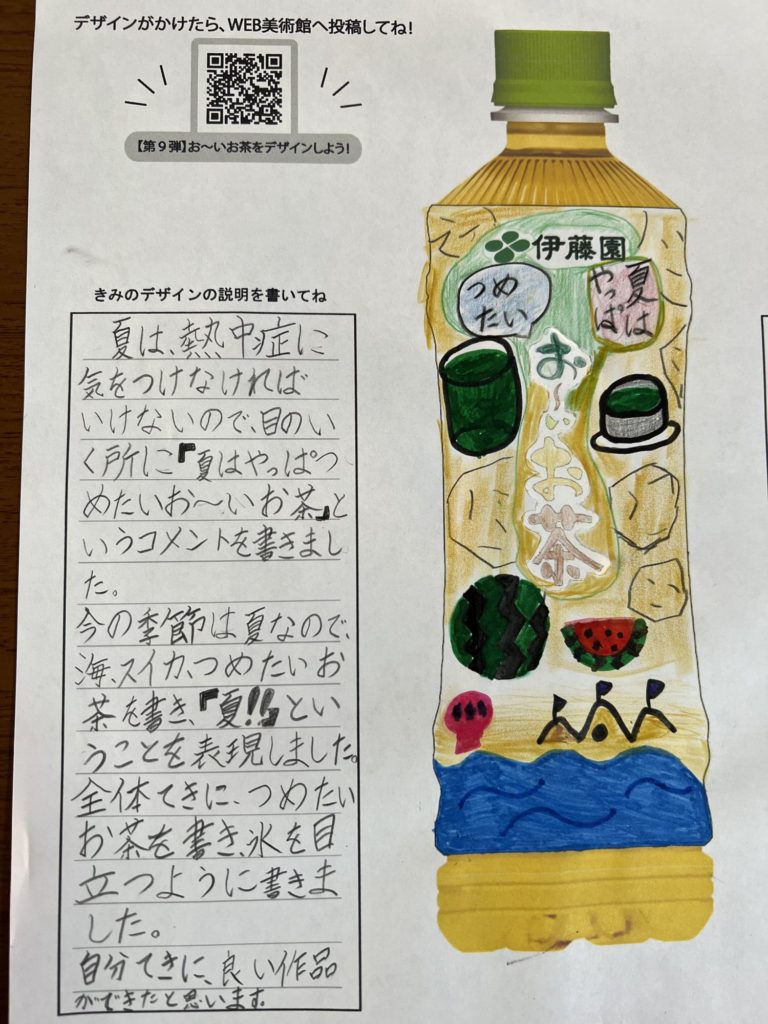 デザインがかけたら、WEB美術館へ投稿してね！
【第９弾】お〜いお茶をデザインしよう！
きみのデザインの説明を書いてね
夏は、熱中症に
気をつけなければ
いけないので、目のい
く所に『夏はやっぱつ
めたいお〜いお茶』と
いうコメントを書きまし
た。
今の季節は夏なので、
海、スイカ、つめたいお
茶を書き、『夏!!』とい
うことを表現しました。
全体てきに、つめたい
お茶を書き、氷を目
立つように書きま
した。
自分てきに、良い作品
ができたと思います。
伊藤園
夏は
やっぱ
つめ
たい
お〜いお茶